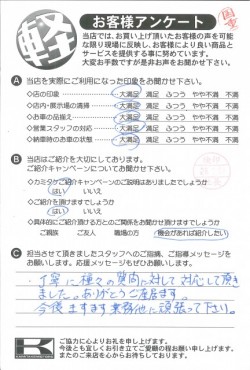 軽
お客様アンケート
当店では、お買い上げ頂いたお客様の声を可能
な限り現場に反映し、お客様により良い商品と
サービスを提供する事に努めています。
大変お手数ですが是非お声をお聞かせ下さい。
A 当店を実際にご利用になった印象をお聞かせ下さい。
◇店の印象 大満足 満足 ふつう やや不満 不満
◇店内・展示場の清掃 大満足 満足 ふつう やや不満 不満
◇お車の品揃え 大満足 満足 ふつう やや不満 不満
◇営業スタッフの対応 大満足 満足 ふつう やや不満 不満
◇納車時のお車の状態 大満足 満足 ふつう やや不満 不満
B 当店はご紹介を大切にしております。
ご紹介キャンペーンについてお聞かせ下さい。
◇カミタケご紹介キャンペーンのご説明はありましたでしょうか
はい いいえ
◇ご紹介を頂けますでしょうか
はい いいえ
◇具体的にご紹介頂ける方とのご関係をお聞かせ頂けますでしょうか
ご親族 ご友人 職場の方 機会があれば紹介したい
C 担当させて頂きましたスタッフへのご指摘、ご指導メッセージを
お願いします。応援メッセージもぜひお願いします。
・丁寧に種々の質問に対して対応して頂き
ました。ありがとうございます。
今後ますます業務他に頑張って下さい。
K
ご協力に心よりお礼を申し上げます。
今後とも宜しくお引き立てご愛顧の程お願い申し上げます。
またのご来店を心からお待ちしております。